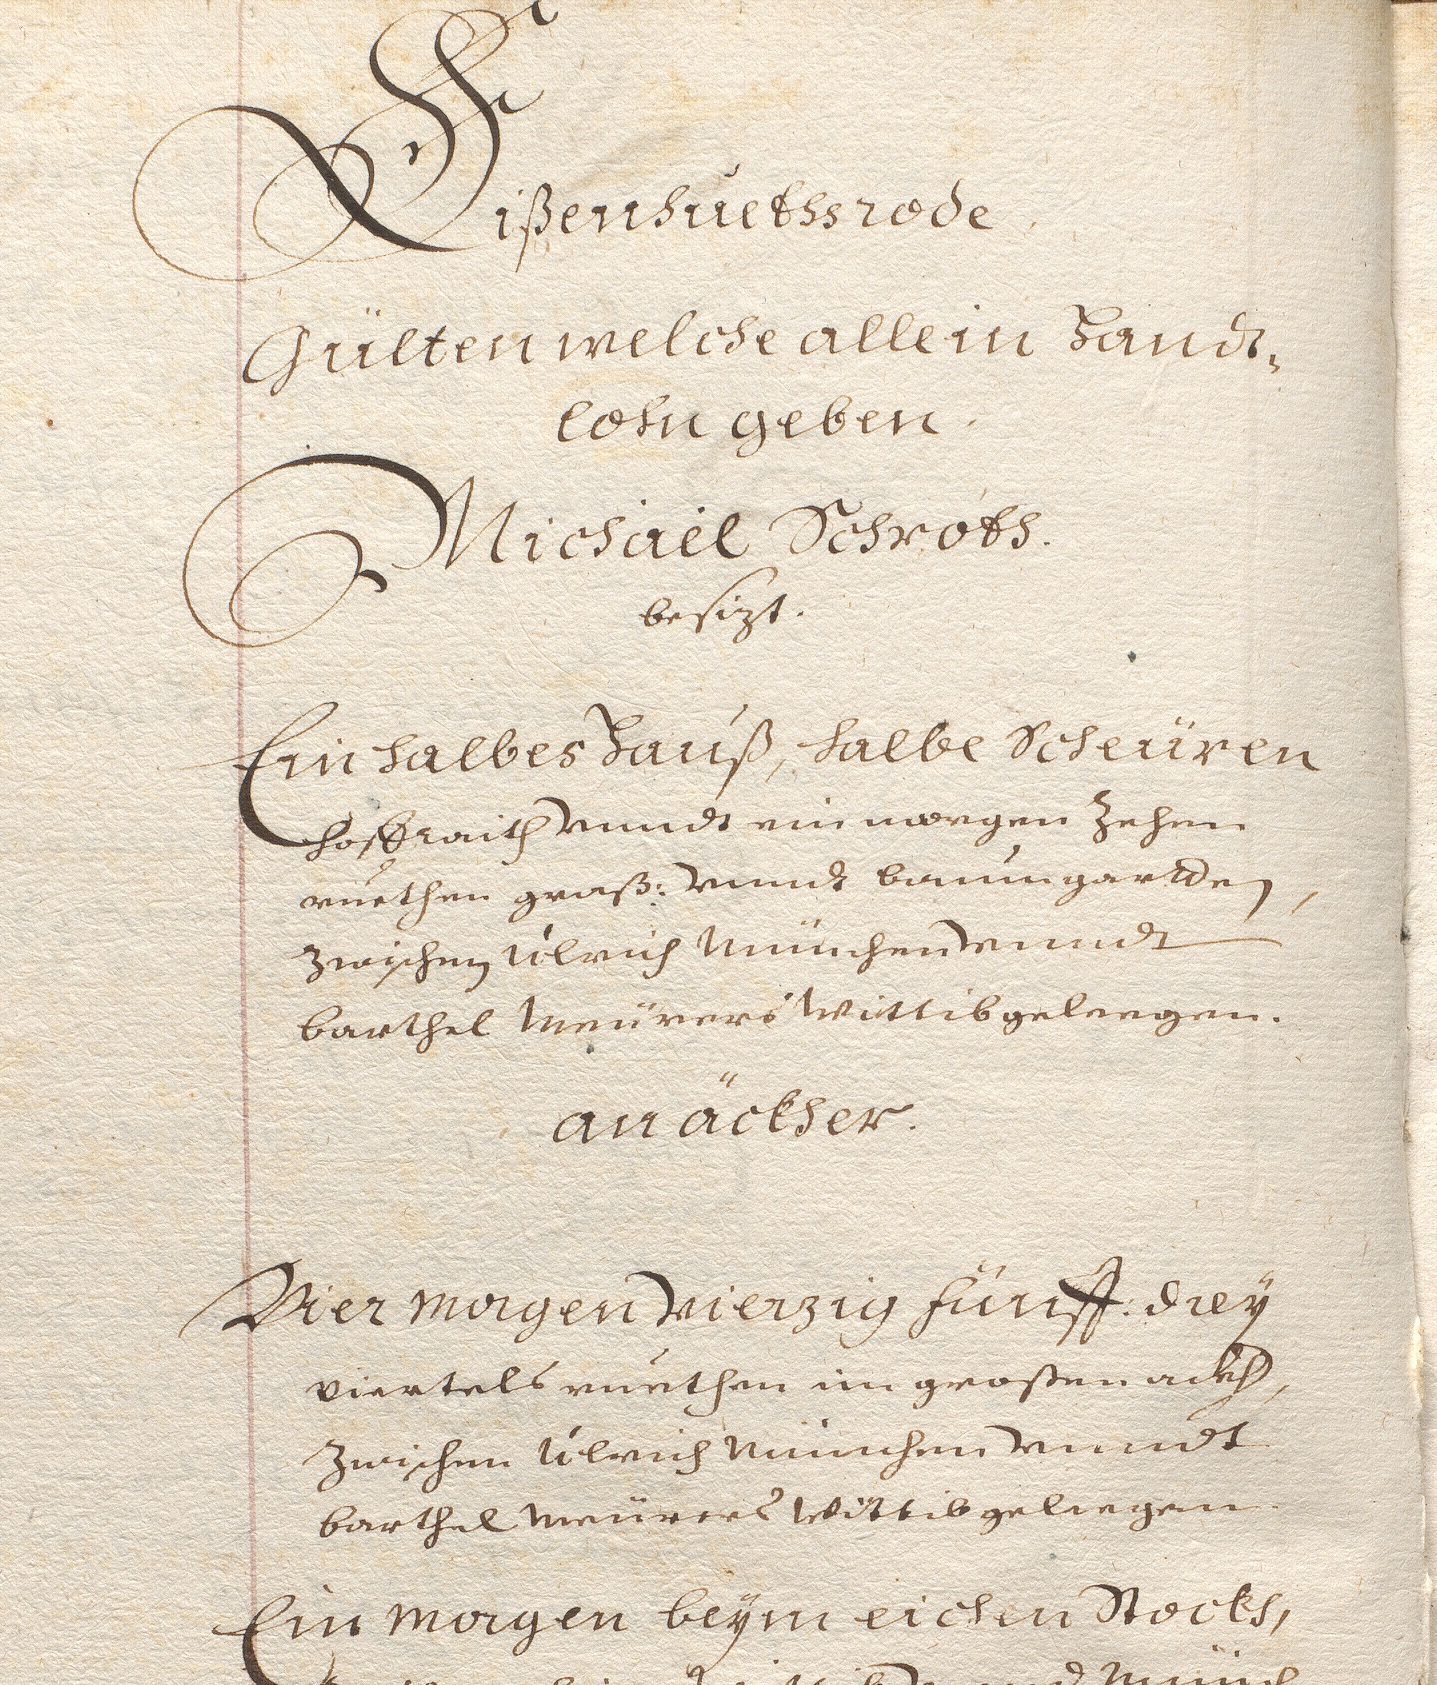 Eißenhuethsrode
Gülten welche allein Handt,
lohn geben.
Michaël Schroth.
besizt.
Ein halbes Hauß, halbe Scheüren
hoffraith vnndt ein morgen Zehen
ruethen graß: vnndt baumgartten,
zwischen Ulrich München vnndt
barthel Meürers Wittib gelegen.
an äckher.
Vier morgen vierzig fünff: drey
viertels ruethen im großen ackh,
zwischen Ulrich München vnndt
barthel Meürers Wittib gelegen.
Ein morgen beÿm eichen Stockh,